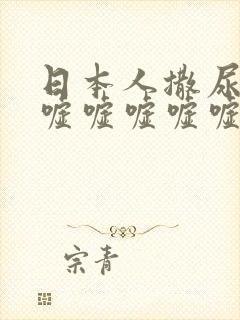 日本人撒尿
嘘嘘嘘嘘嘘
宗青